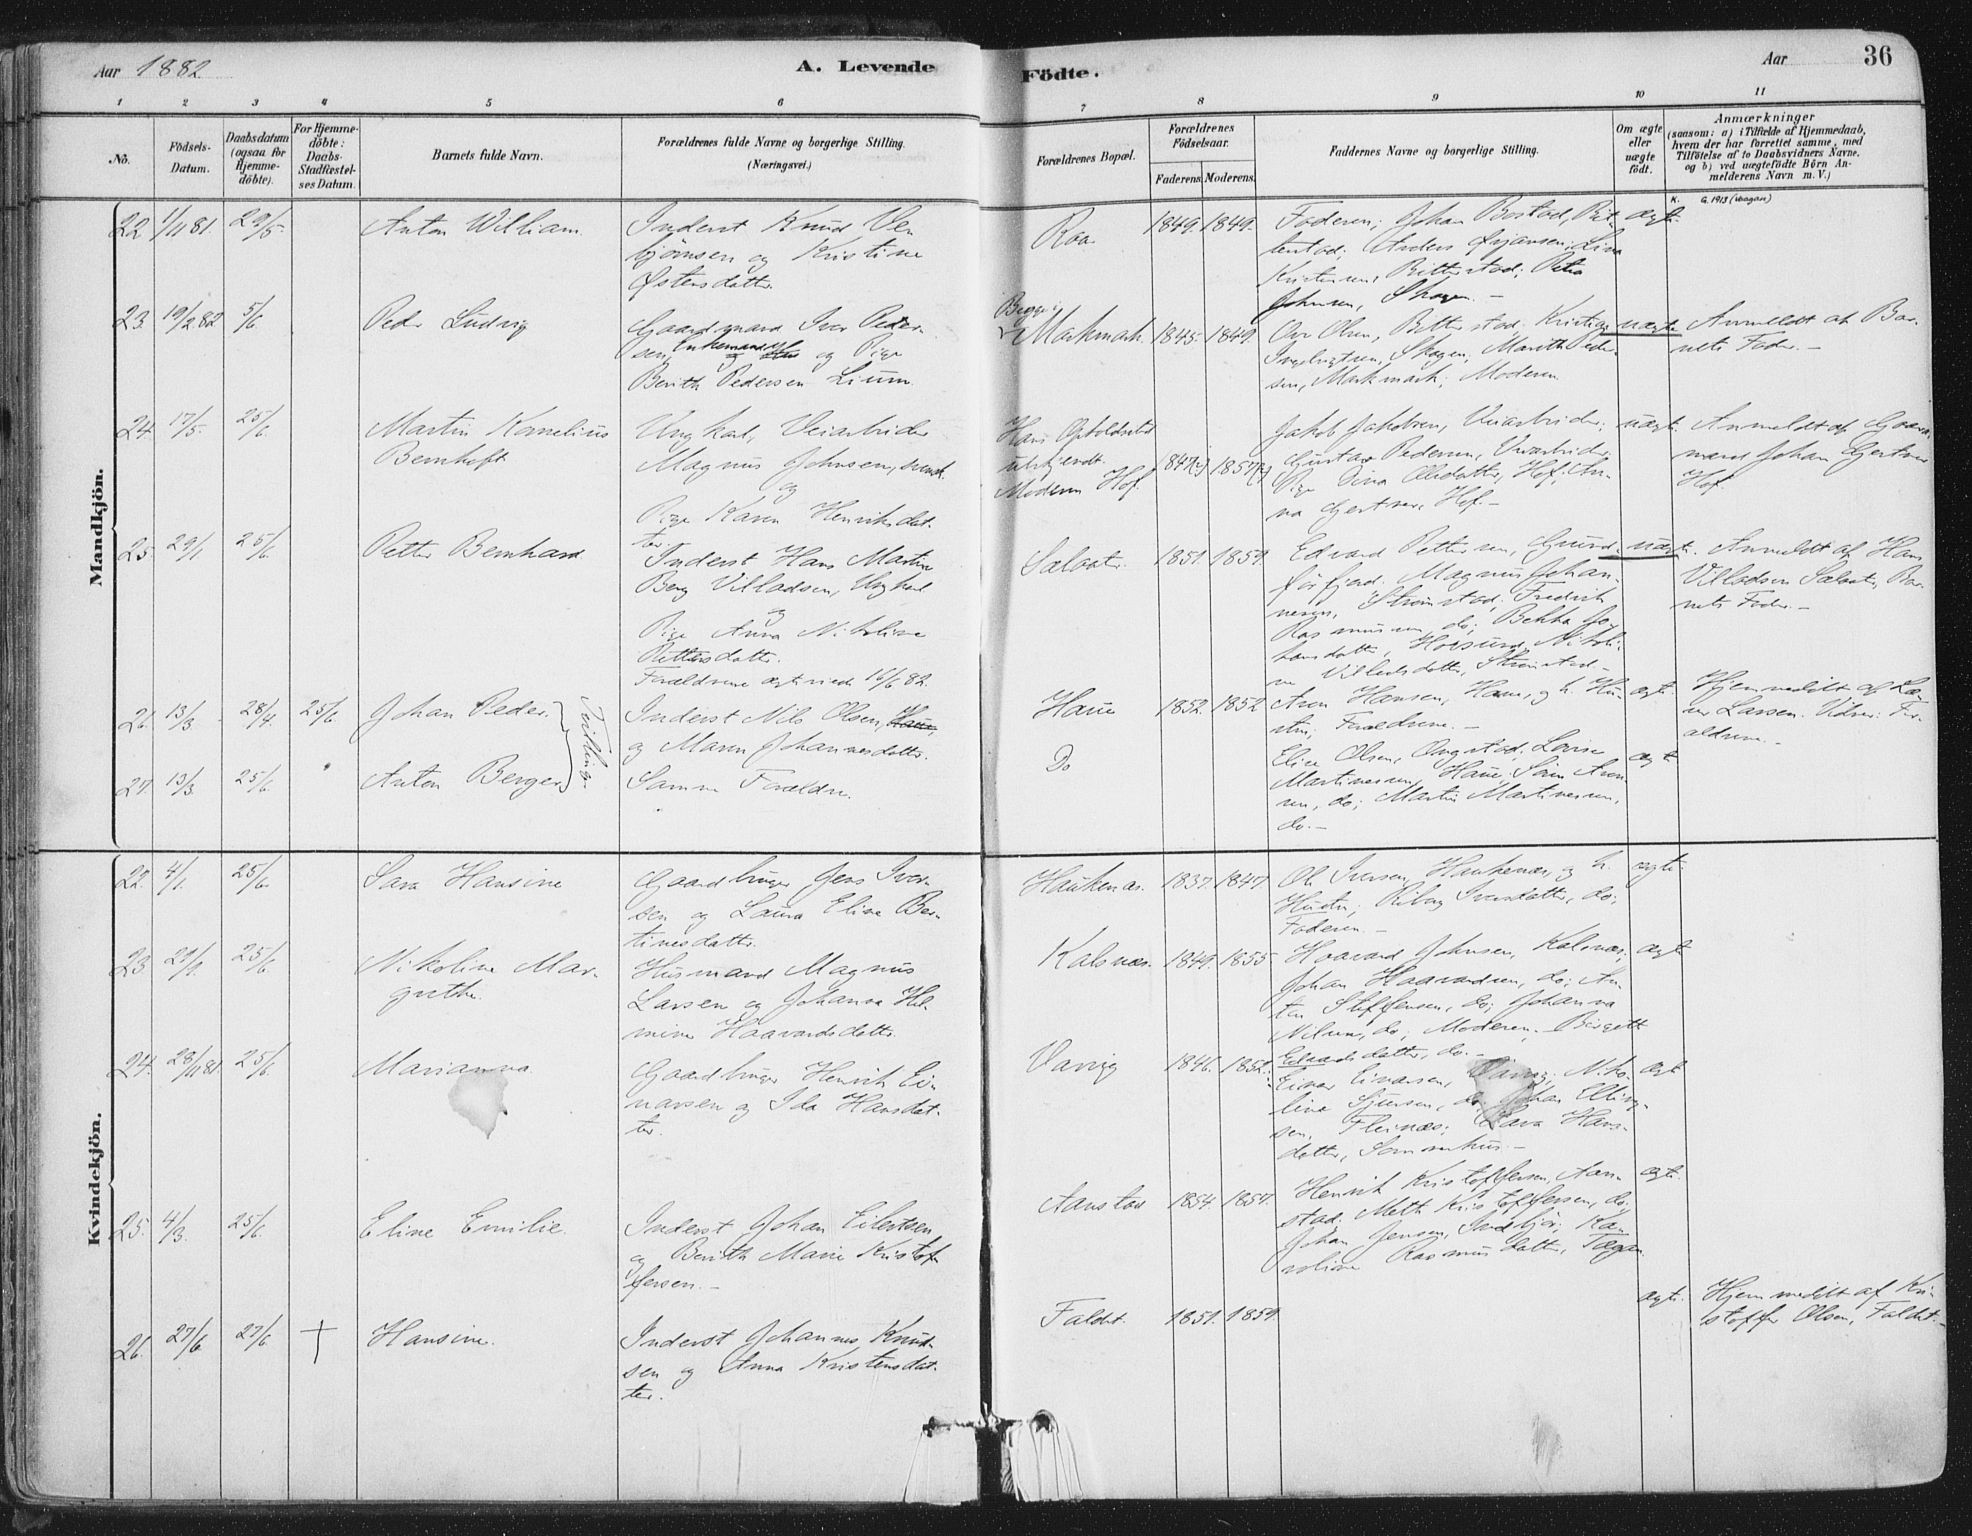 Aar 1882
A. Levende
Födte.
Aar
36
1 2 3 4 5 6
7 8 9 10 11
No.
Födsels-
Datum.
Daabsdatum
(ogsaa for
Hjemme-
döbte).
For Hjemme-
döbte:
Daabs-
Stadfæstel-
ses Datum.
Barnets fulde Navn.
Forældrenes fulde Navne og borgerlige Stilling.
(Næringsvei.)
Forældrenes Bopæl.
Forældrenes
Födselsaar.
Faderens. Moderens.
Faddernes Navne og borgerlige Stilling.
Om ægte
eller
uægte
födt.
Anmærkninger
(saasom: a) i Tilfælde af Hjemmedaab,
hvem der har forrettet samme, med
Tilföielse af to Daabsvidners Navne,
og b) ved uægtefödte Börn An-
melderens Navn m. V.)
Mandkjön.
22. 1/11 81. 29/5. Anton William
Inderst Knud Ole
bjørnsen og Kristine
Østensdatter.
Raa 1849. 1849.
Faderen; Johan Bostad, Rit-
terstad; Anders Ørjansen; Lina
Kristensen, Ritterstad; Petra
Johnsen, Skagen. -
ægte
23. 19/2 82 5/6. Peder Ludvig
Gaardmand Iver Peder-
sen, Enkemand og Pige
Berith Pedersen Lium.
Begge:
Markmark. 1845. 1849.
Ove Olsen, Ritterstad; Kristiane
Ingebrigtsen, Skagen; Marith Peder-
sen, Markmark; Moderen
uægte
Anmeldt af Bar-
nets Fader. -
24. 17/5. 25/6. Martin Kornelius
Bernhoft
Ungkarl, Veiarbeider
Magnus Johnsen, svensk.
og
Pige Karen Henriksdat-
ter.
Hans Opholdssted
ubekjendt.
Moderen Hof. 1847(?) 1857(?)
Jakob Jakobsen, Veiarbeider;
Gustav Pedersen, Veiarbeider;
Pige Dina Olledatter, Hof; An-
na Gjertsen, Hof. -
uægte.
Anmeldt af Gaard-
mand Johan Gjertsen
Hof.
25. 29/1 25/6. Petter Bernhard
Inderst Hans Martin
Berg Villadsen, Ungkarl
og
Pige Anna Nikoline
Pettersdatter.
Forældrene ægteviede 16/6 82.
Salvater. 1851. 1859.
Edvard Pettersen, Gund-
førfjord. Magnus Johan-
nesen, Strømstad; Fredrik
Rasmussen, do; Bekka Jo-
hansdatter, Hoesund; Nikoli-
ne Villadsdatter, Strømstad. -
uægte.
Anmeldt af Hans
Villadsen Salvater, Bar-
nets Fader. -
26. 13/3 28/4. 25/6. Johan Peder.
Tvillinger
Inderst Nils Olsen,
og Maren Johannesdatter.
Haue 1852. 1852
Aron Hansen, Haue, og h. Hu-
stru; Forældrene. -
ægte.
Hjemmedøbt af
Larsen. Vidner: For-
ældrene. -
27. 13/3. 25/6. Anton Berger
Samme Forældre.
Do
Elise Olsen, Ongstad; Lovise
Martinessen, Haue; Sara Aron-
sen, do; Martin Martinessen,
do. -
ægte
Kvindekjön.
22. 4/1. 25/6. Sara Hansine
Gaardbruger Jens Iver-
sen og Laura Eline Ber-
tinesdatter.
Haukenæs. 1837. 1847.
Ole Iversen, Haukenæs, og h.
Hustru; Riborg Iversdatter, do;
Faderen. -
ægte.
23. 21/1. 25/6. Nikoline Mar-
grethe.
Husmand Magnus
Larsen og Johanna Hel-
mine Haavardsdatter.
Kalsnæs. 1849. 1855
Haavard Johnsen, Kalsnæs;
Johan Haavardsen, do; An-
ton Steffensen, do; Johanna
Nilsen, do; Moderen; Birgett
Edvardsdatter, do. -
ægte
24. 28/11 81. 25/6. Marianna.
Gaardbruger Henrik Ei-
narsen og Ida Hansdat-
ter.
Varvig 1846. 1852.
Einar Einarsen, Varvig; Niko-
line Sjursen, do; Johan Elling-
sen, Fleinæs; Lava Hans-
datter, Sommerhus. -
ægte
25. 4/3. 25/6. Eline Emilie.
Inderst Johan Eilertsen
og Berith Marie Kristof-
fersen. -
Aanstad 1854. 1857.
Henrik Kristoffersen, Aan-
stad; Meth Kristoffersen, do;
Johan Jensen, Indebjør; Ka-
roline Rasmusdatter,
ægte.
26. 27/6 27/6. † Hansine.
Inderst Johannes Knud-
sen og Anna Kristensdat-
ter.
Faldet. 1851. 1859.
ægte.
Hjemmedøbt af Kri-
stoffer Olsen, Faldet. -